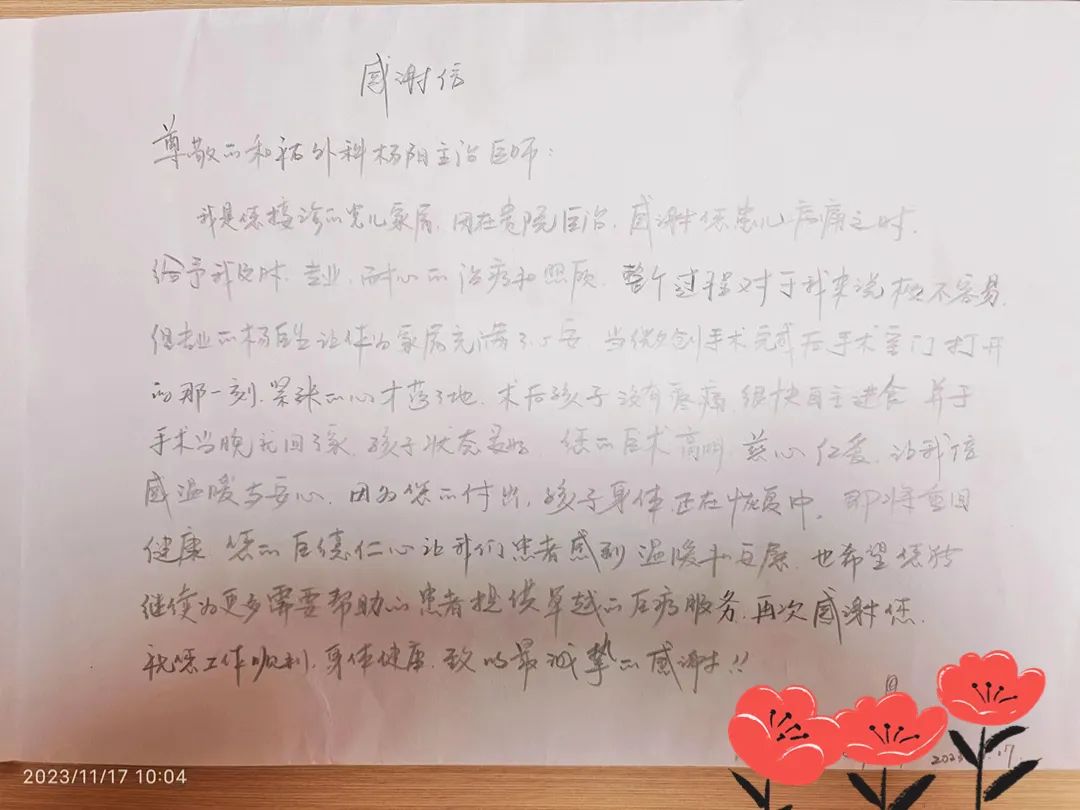 感谢信
尊敬的和祐外科杨阳主治医师：
我是您接诊的患儿家属，因在贵院医治，感谢您患儿病痛之时，
给予我及时、专业、耐心的治疗和照顾，整个过程对于我来说极不容易，
但专业的杨医生让作为家属充满了心安，当微创手术完成后手术室门打开
的那一刻，紧张的心才落了地，术后孩子没有疼痛，很快自主进食，并于
手术当晚就回了家，孩子状态良好，您的医术高明，慈心仁爱，让我倍
感温暖与安心，因为您的付出，孩子身体正在恢复中，即将重回
健康，您的医德仁心让我们患者感到温暖和安康，也希望您能
继续为更多需要帮助的患者提供卓越的医疗服务，再次感谢您，
祝您工作顺利，身体健康，致以最诚挚的感谢！！
17
2023/11/17 10:04